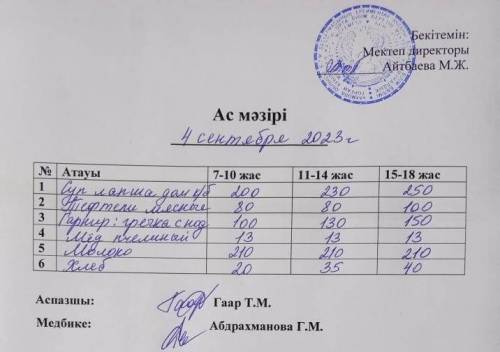 Бекітемін:
Мектеп директоры
Айтбаева М.Ж.
Ас мәзірі
4 сентября 2023г
№ Атауы 7-10 жас 11-14 жас 15-18 жас
1 Суп лапша дом к/б 200 230 250
2 Тефтели мясные 80 80 100
3 Гарнир: гречка с под 100 130 150
4 Мёд пчелиный 13 13 13
5 Молоко 210 210 210
6 Хлеб 20 35 40
Аспазшы: Гаар Т.М.
Медбике: Абдрахманова Г.М.